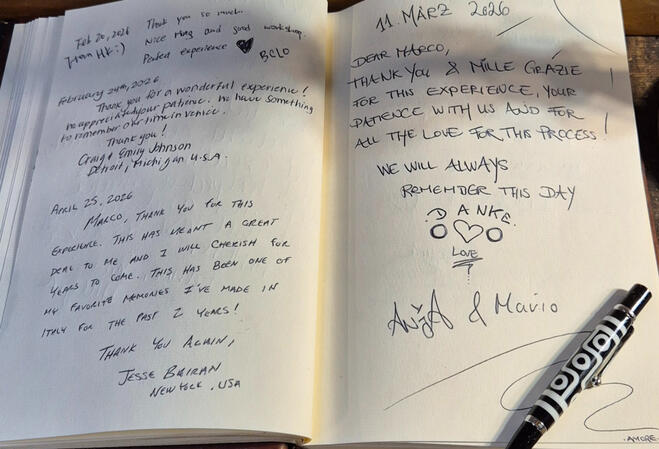 Feb 20, 2026 Thank you so much.
From HK :) Nice Mag and good workshop.
Perfect experience ♥ BCLO
February 24th, 2026
Thank you for a wonderful experience!
We appreciated your patience. We have something
to remember our time in Venice.
Thank you!
Craig & Emily Johnson
Detroit, Michigan U.S.A.
April 25, 2026
Marco, Thank you for this
experience. This has meant a great
deal to me and I will cherish for
years to come. This has been one of
my favorite memories I've made in
Italy for the past 2 years!
Thank you again,
Jesse Bairan
New York, USA
11. MÄRZ 2026
DEAR MARCO,
THANK YOU & MILLE GRAZIE
FOR THIS EXPERIENCE, YOUR
PATIENCE WITH US AND FOR
ALL THE LOVE FOR THIS PROCESS!
WE WILL ALWAYS
REMEMBER THIS DAY
DANKE.
O♡O
LOVE
Anja & Mario
AMORE